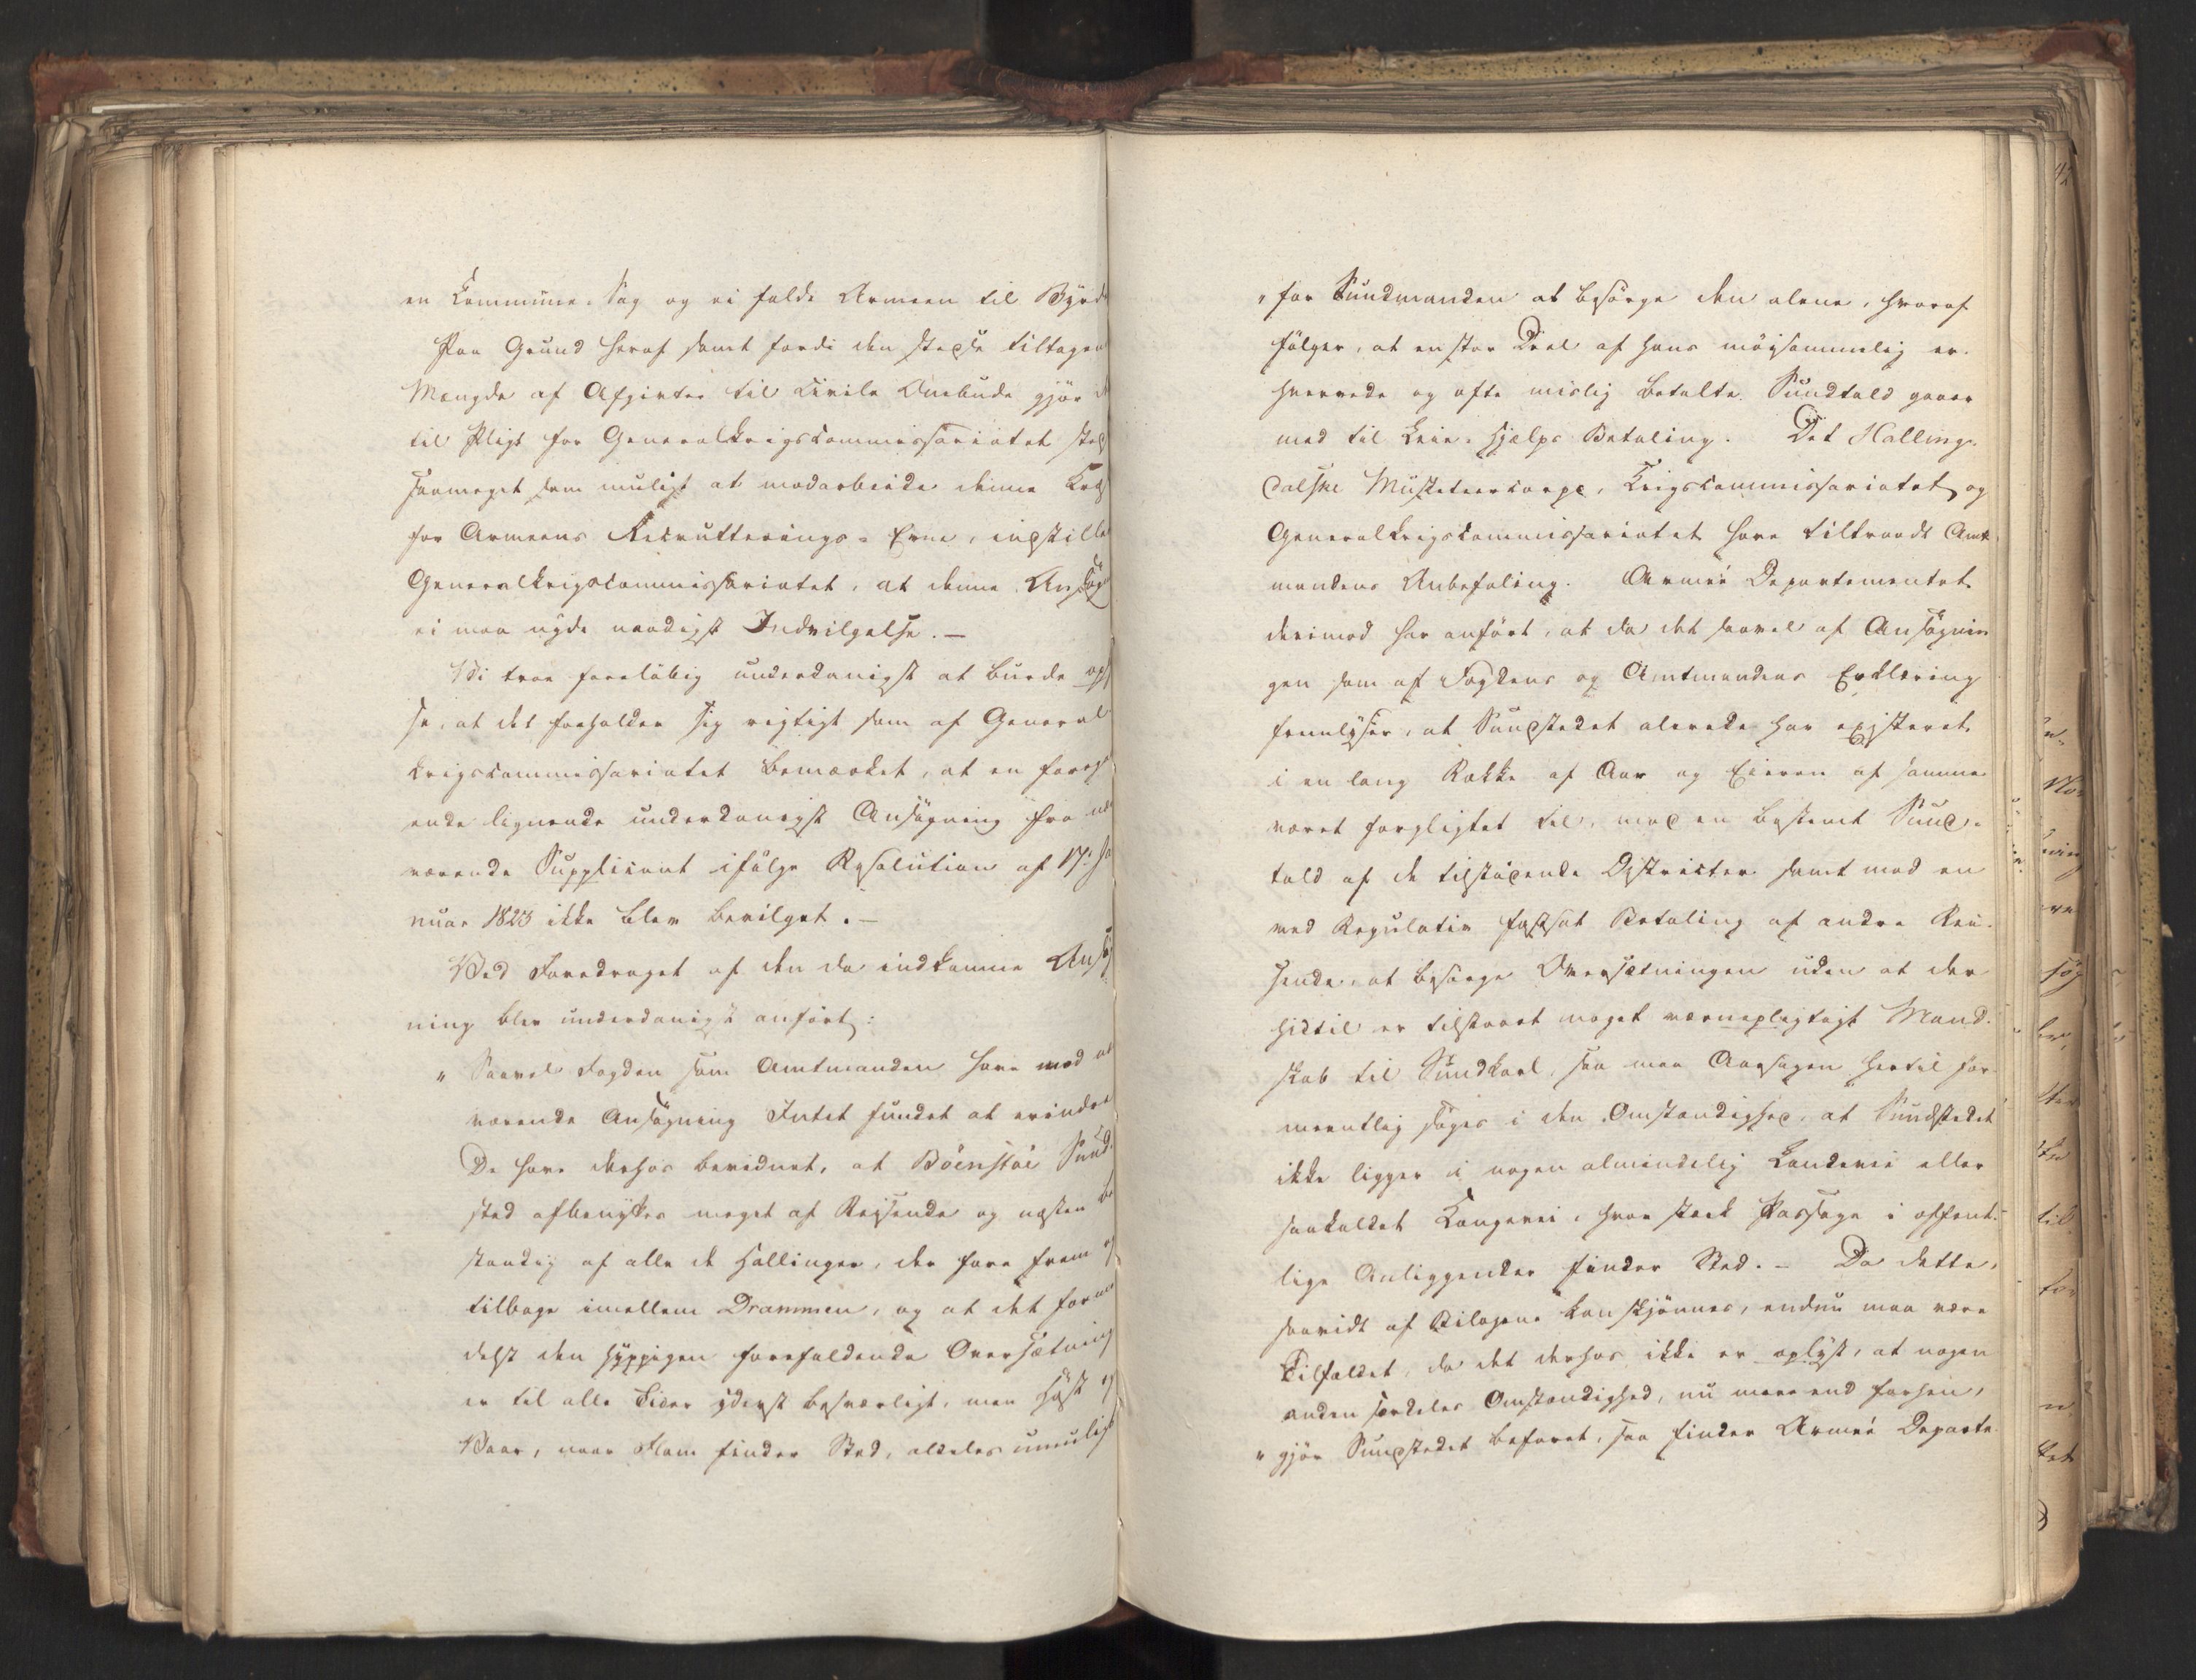 en Commune-Sag og ei falde Armeen til Byrde
Paa Grund heraf samt fordi den stedse tiltagen
Mængde af Afgivter til civile Ombude gjør
til Pligt for Generalkrigscommissariatet
saameget som muligt at modarbeide denne
for Armeens Recrutterings-Evne, indstiller
Generalkrigscommissariatet, at denne Ansøg
ei maa nyde naadigst Indvilgelse. —
Vi troe foreløbig underdanigst at burde op
se, at det forholder sig rigtigt som af General
krigscommissariatet bemærket, at en forega
ende lignende underdanigst Ansøgning fra nær
værende Supplicant ifølge Resolution af 17. Ja
nuar 1823 ikke blev bevilget. —
Ved Foredraget af den da indkomne Ansøg
ning blev underdanigst anført:
" Saavel Fogden som Amtmanden have mod nær
værende Ansøgning Intet fundet at erindre
De have derhos bevidnet, at Böenstöe Sund-
sted afbenyttes meget af Reisende og næsten be
standig af alle de Hallinger, der fare frem og
tilbage imellem Drammen, og at det forme
delst den hyppigen forefaldende Oversætning
er til alle Tider yderst besværligt, men Høst og
Vaar, naar Flom finder Sted, aldeles umuligt
" for Sundmanden at besørge den alene, hvoraf
følger, at en stor Deel af hans møisommelig er-
hvervede og ofte mislig betalte Sundtold gaaer
med til Leie-Hjelps Betaling. Det Hallings-
dalske Musketeercorps, Krigscommissariatet og
Generalkrigscommissariatet have tiltraadt Amt-
mandens Anbefaling. Armee Departementet
derimod har anført, at da det saavel af Ansøgnin
gen som af Fogdens og Amtmandens Erklæring
fremlyser, at Sundstedet allerede har existeret
i en lang Række af Aar og Eieren af samme
været forpligtet til, mod en bestemt Sund-
told af de tilstødende Districter samt mod en
ved Regulativ fastsat Betaling af andre Rei-
sende, at besørge Oversætningen uden at der
hidtil er tilstaaet noget værnepligtigt Mand-
skab til Sundkarl, saa maa Aarsagen hertil for-
meentlig søges i den Omstændighed, at Sundstedet
ikke ligger i nogen almindelig Landevei eller
saakaldet Kongevei, hvor stærk Passage i offent-
lige Anliggender finder Sted. – Da dette,
saavidt af Bilagene kan skjønnes, endnu maa være
Tilfældet, da det derhos ikke er oplyst, at nogen
anden særdeles Omstændighed, nu mere end forhen,
" gjør Sundstedet befaret, saa finder Armee Departe